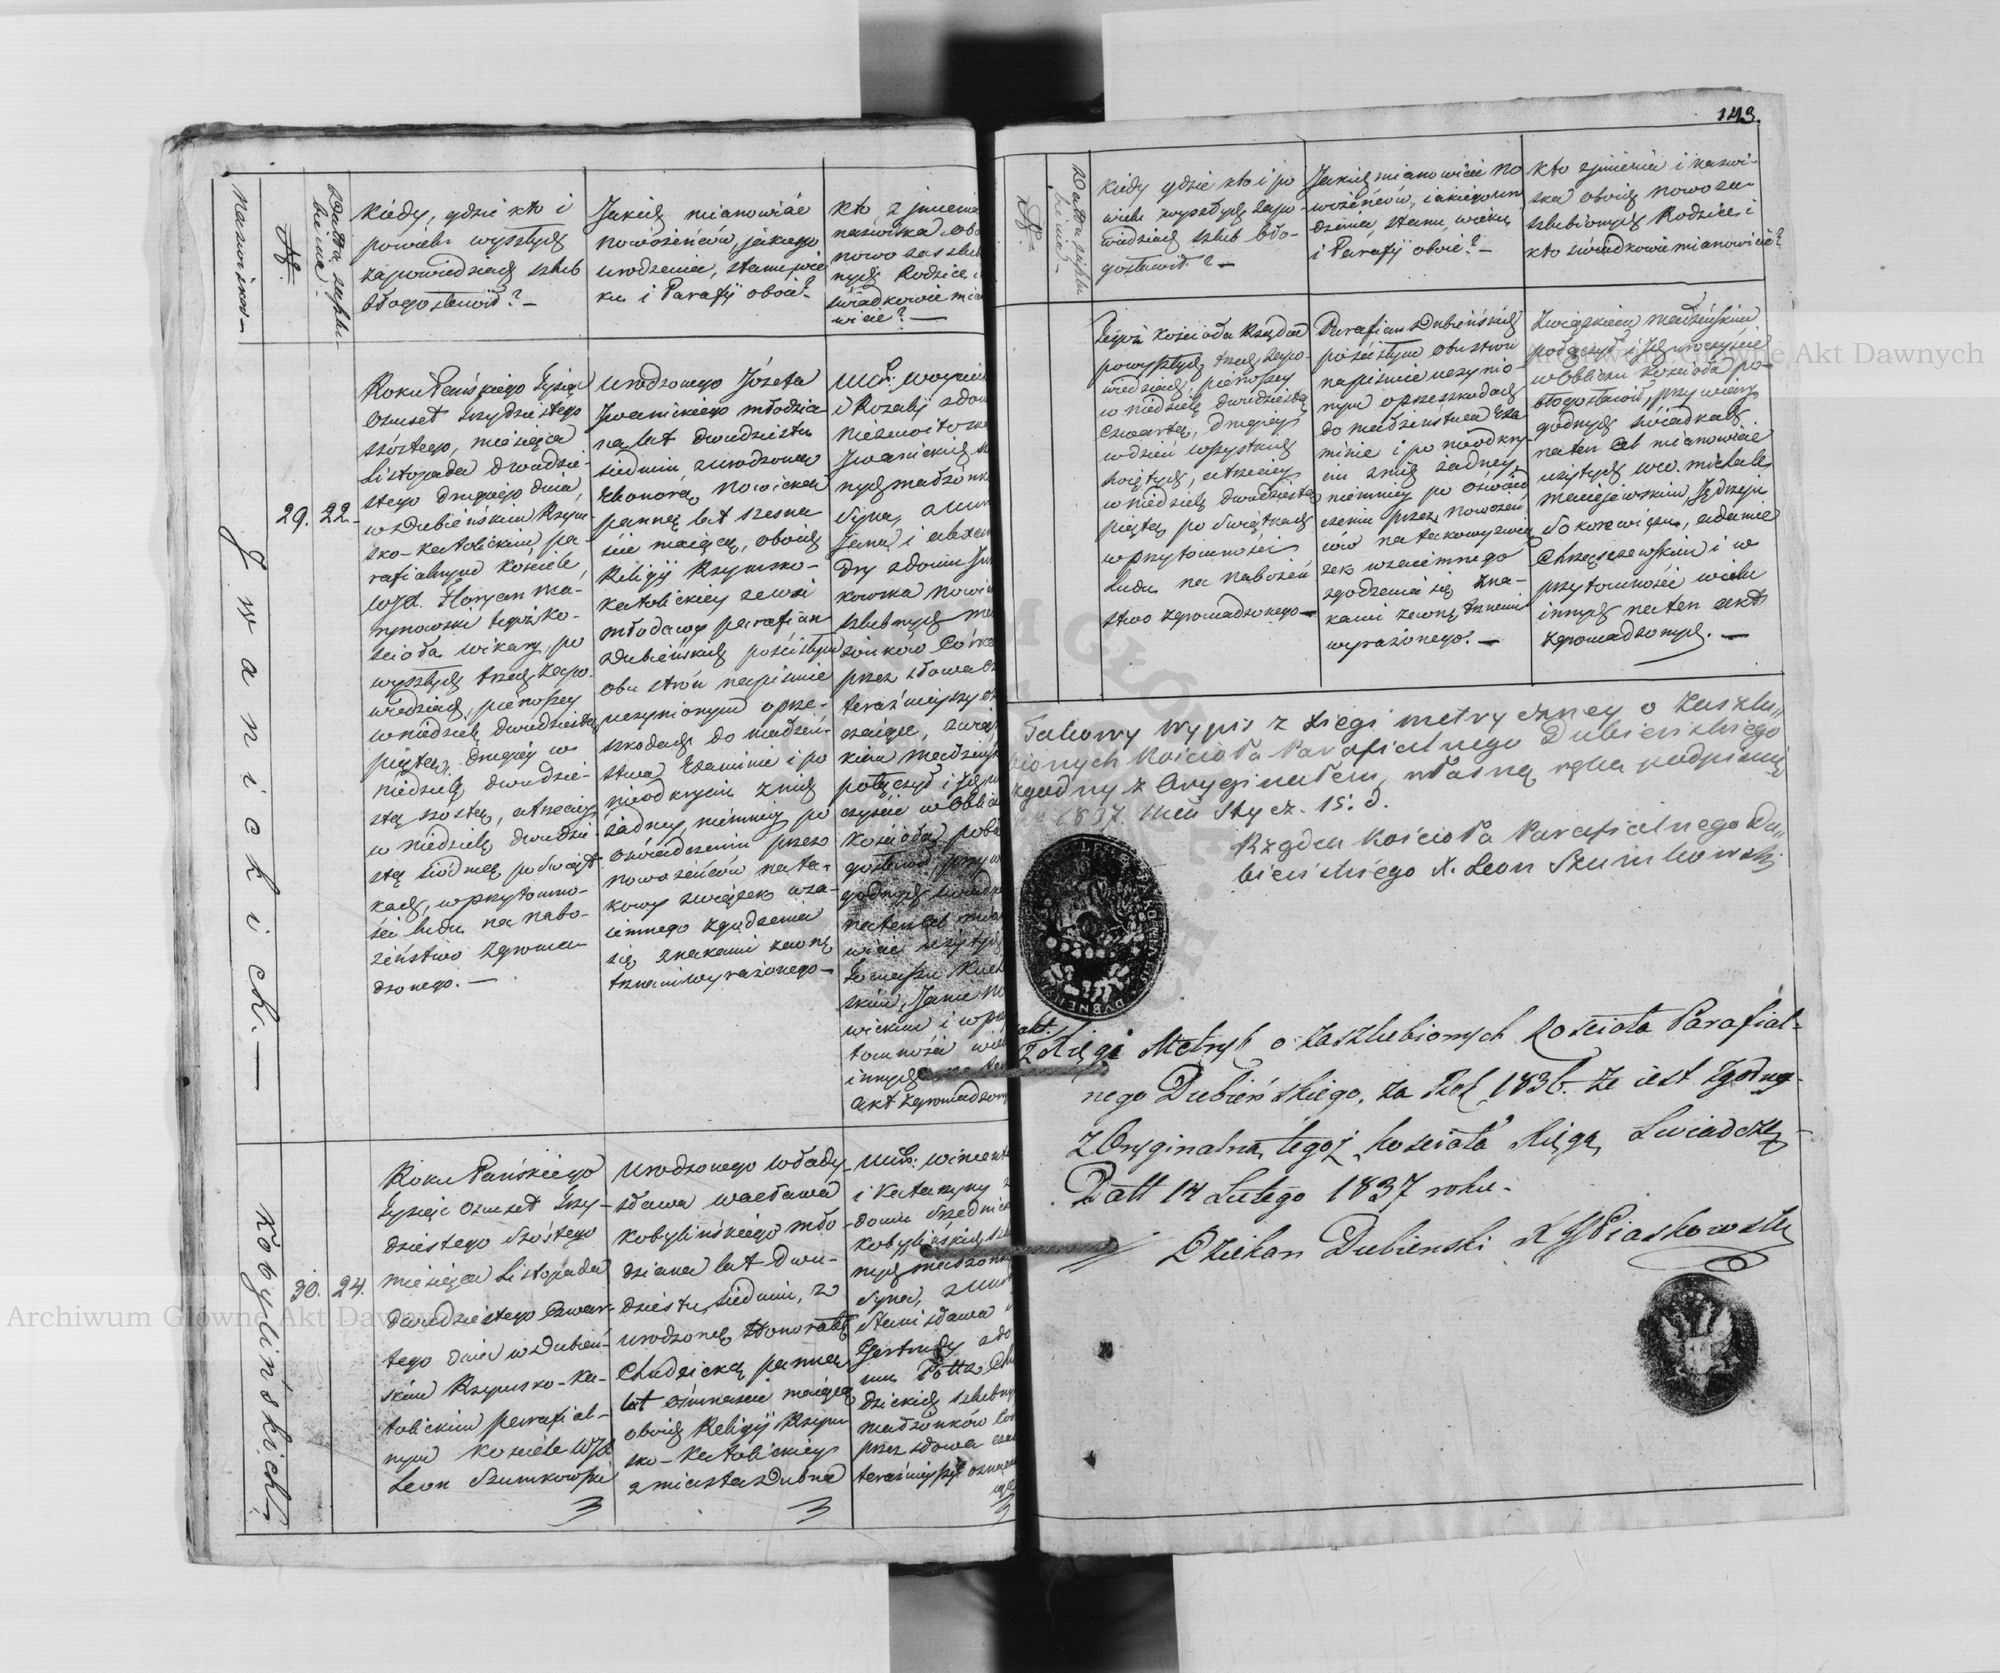 143.
Nazwiska
№
Datta zaślubienia
Kiedy, gdzie kto i
powielu wyszłych
zapowiedziach szlub
błogosławił? —
Jakich mianowicie
nowożeńców, jakiego
urodzenia, stanu, wie-
ku i Parafij oboie?
Kto z jmienia
nazwiska obo
nowo zaszlu
nych Rodzice i
świadkowie mia
wicie? —
Jwanickich. —
29. 22.
Roku Pańskiego Tysiąc
Osmset trzydziestego
szóstego, miesiąca
Listopada dwudzie-
stego drugiego dnia,
w Dubieńskim Rzym-
sko-Katolickim pa-
rafialnym Kościele
WJX. Floryan Ma-
rynowski tegoż Ko-
scioła wikary, po
wyszłych trzech zapo-
wiedziach, pierwszey
w niedzielę dwudziestą
piątą, drugiey w
niedzielę dwudzie-
stą szostą, a trzeciey
w niedzielę dwudzie-
stą siódmą po Świąt-
kach, w przytomno-
ści ludu na nabo-
żeństwo zgroma-
dzonego. —
Urodzonego Józefa
Jwanickiego młodzia-
na lat dwudziestu
siedmiu z urodzoną
Eleonorą Nowicką
panną lat szesna-
ście maiącą, oboich
Religij Rzymsko-
Katolickiey zewsi
Młodawy parafian
Dubieńskich pościsłym
obu strón napiśmie
uczynionym o prze-
szkodach do małżeń-
stwa Examinie i po
nieodkryciu z nich
żadney, niemniey po
oświadczeniu przez
nowożeńców na ta-
kowy związek wza-
iemnego zgodzenia
się znakami zewnę-
trznemi wyrażonego —
Jwanickich
nych małżonk
Syna, z Urr
Jana i Alexan
dry z domu
kowska Nowic
szlubnych mał
żonków Córką
przez słowa cz
teraźnieyszy oz
czaiące, związ
kiem małżeńsk
połączył i Jch
czyście w obli
Kościoła pobło
gosławił przy w
godnych świadk
natenczas mia
wicie użytych
Tomaszu
skim, Janie No
wickim i w prz
tomności wiel
innych na ten
akt zgromadzon
Kobylińskich.
30. 24.
Roku Pańskiego
tysiąc osmset trzy-
dziestego szóstego
miesiąca Listopada
dwudziestego czwar-
tego dnia w Dubień-
skim Rzymsko-Ka-
tolickim parafial-
nym Kosciele WJX
Leon Szumkowski
Urodzonego Włady-
sława Wacława
Kobylińskiego mło-
dziana lat dwu-
dziestu siedmiu, z
urodzoną Honoratą
Chudzicką panną
lat ośmnaście maiącą
oboich Religij Rzym-
sko-Katolickiey
z miasta Dubna
Urr: Wincente
i Katarzyny z
domu Srzednick
Kobylińskich szlu
nych małżonk
Syna, z Urr
Stanisława
Gertrudy z do
mu Chu
dzickich szlubny
małżonków Cór
przez słowa czas
teraźnieyszy oznacz
№
Datta zaszlubienia
Kiedy gdzie kto i po
wielu wyszłych zapo-
wiedziach szlub bło-
gosławił? —
Jakich mianowicie no
wożeńców, iakiego uro
dzenia, stanu, wieku
i Parafij oboie? —
Kto zjmienia i nazwi-
ska oboich nowo za-
szlubionych Rodzice i
kto świadkowie mianowicie?
tegoż Kościoła Rządca
powyszłych trzech zapo-
wiedziach, pierwszey
w niedzielę dwudziestą
czwartą, drugiey
w dzień wszystkich
świętych, a trzeciey
w niedzielę dwudziestą
piątą po Świątkach
w przytomności
ludu na nabożeń
stwo zgromadzonego —
Parafian Dubieńskich
pościsłym obustrón
napiśmie uczynio-
nym o przeszkodach
do małżeństwa Exa-
minie i po nieodkry-
ciu znich żadney,
niemniey po oświad-
czeniu przez nowożeń
ców na takowy zwią
zek wzaiemnego
zgodzenia się zna-
kami zewnętrznemi
wyrażonego. —
Związkiem małżeńskim
połączył i Jch uroczyście
w obliczu kościoła po-
błogosławił, przy wiary
godnych świadkach
naten czas mianowicie
użytych WW. Michale
Maciejewskim Jędrzeju
Sokorewiczu, Adamie
Chrząszczewskim i w
przytomności wielu
innych na ten akt
zgromadzonych. —
Takowy wypis z xięgi metryczney o zaszlu-
bionych Kościoła Parafialnego Dubieńskiego
zgodny z Oryginałem, własną ręką podpisuię
1837. Mca Stycz. 15. d.
Rządca Kościoła Parafialnego Du-
bieńskiego X. Leon Szumkowski
Z Xięgi Metryk o zaszlubionych Kościoła Parafial-
nego Dubieńskiego, za Rok 1836. że iest zgodny
z Oryginalną tegoż Kościoła Xięgą, świadczę
Datt 14 Lutego 1837 roku.
Dziekan Dubienski X Piaskowski
Archiwum Główne Akt Dawnych
Archiwum Główne Akt Dawnych